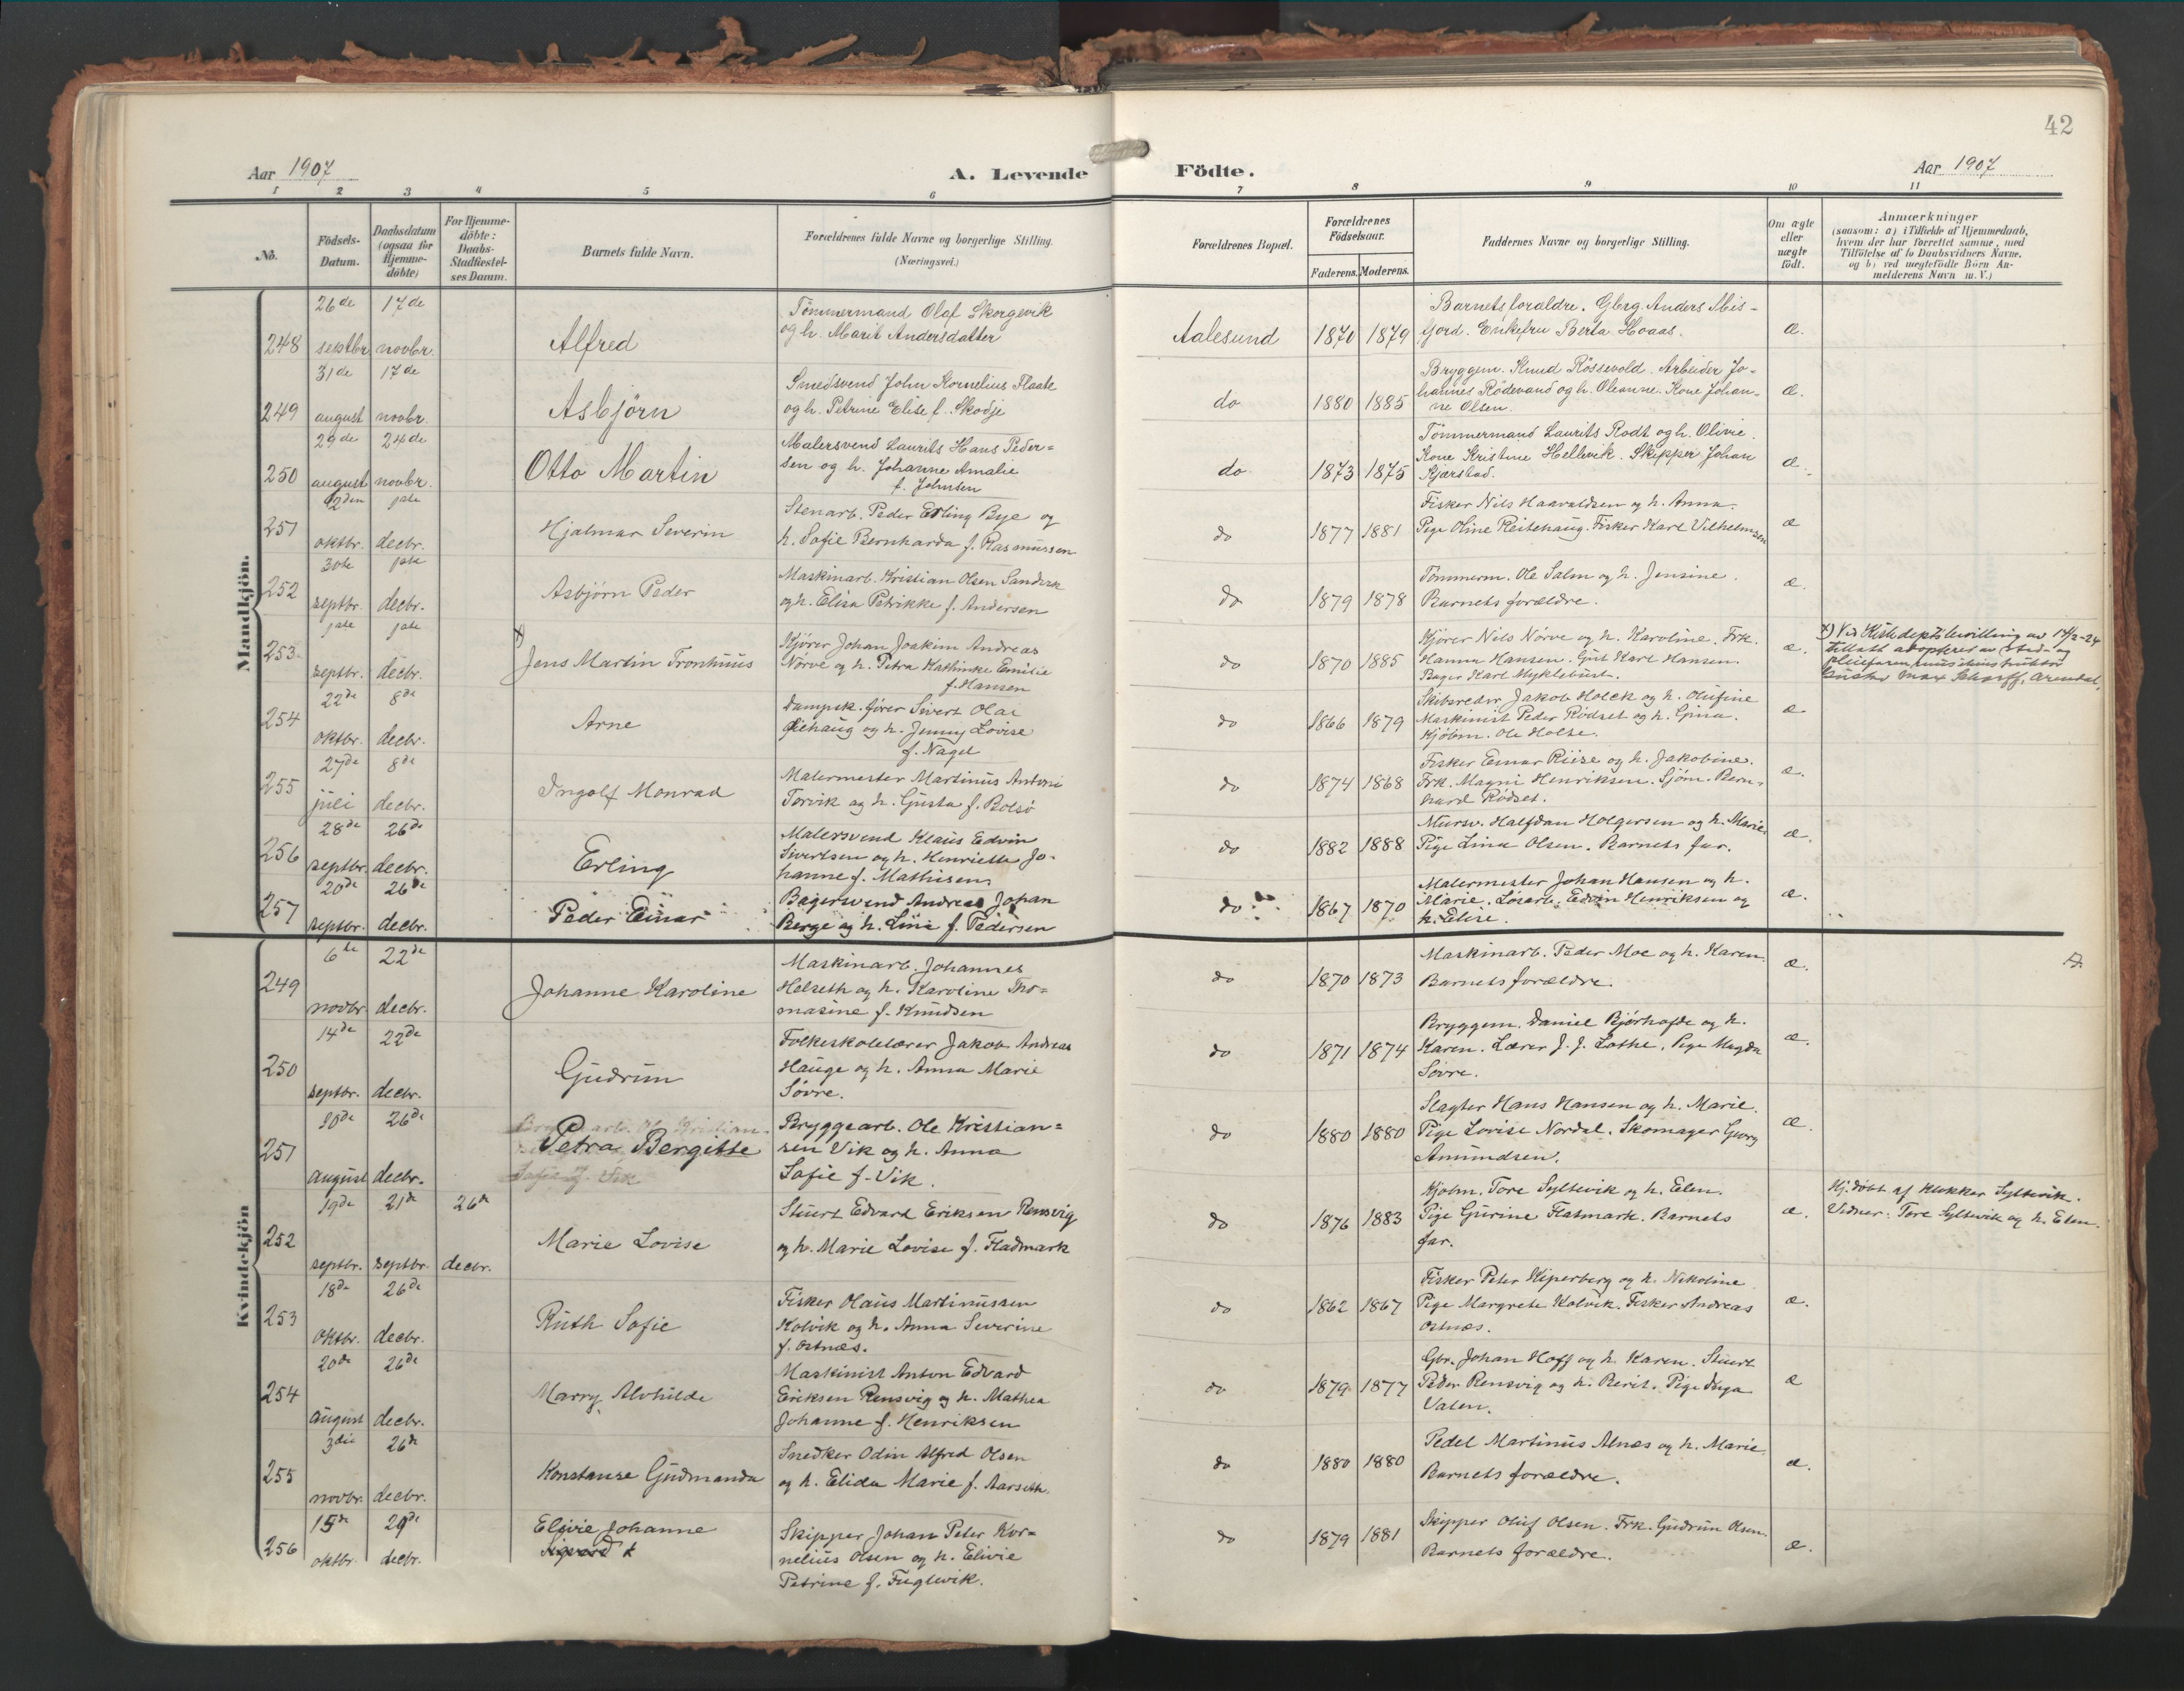 42
Aar 1907
A. Levende Födte.
Aar 1907
1 2 3 4 5 6 7 8 9 10 11
No.
Födsels-Datum.
Daabsdatum (ogsaa for Hjemme-döbte)
For Hjemme-döbte: Daabs-Stadfæstel-ses Datum.
Barnets fulde Navn.
Forældrenes fulde Navne og borgerlige Stilling.
(Næringsvei.)
Forældrenes Bopæl.
Forældrenes Födselsaar.
Faderens. Moderens.
Faddernes Navne og borgerlige Stilling.
Om ægte eller uægte födt.
Anmærkninger
(saasom: a) i Tilfælde af Hjemmedaab,
hvem der har forrettet samme, med
Tilföielse af to Daabsvidners Navne,
og b) ved uægtefödte Börn An-
melderens Navn m. V.)
Mandkjön.
248 26de septbr. 17de novbr.
Alfred
Tömmermand Olaf Skorgevik
og h. Marit Andersdatter
Aalesund 1870 1879
Barnets forældre. Gbrg. Anders Mis-
fjord. Enkefru Berta Hoaas.
æ.
249 31de august 17de novbr.
Asbjörn
Smedsvend John Kornelius Flaate
og h. Petrine Elise f. Skodje
do 1880 1885
Bryggem. Knud Rössevold. Arbeider Jo-
hannes Rödevand og h. Oleanne. Kone Johan-
ne Olsen.
æ.
250 29de august 24de novbr.
Otto Martin
Malersvend Laurits Hans Peder-
sen og h. Johanne Amalie
f. Johnsen
do 1873 1875
Tömmermand Laurits Rodt og h. Olivie.
Kone Kristine Hellevik. Skipper Johan
Kjærstad.
æ.
251 12den oktbr. 1ste decbr.
Hjalmar Severin
Stenarb. Peder Erling Bye og
h. Sofie Bernharda f. Rasmussen
do 1877 1881
Fisker Nils Haavaldsen og h. Anna.
Pige Oline Reitehaug. Fisker Karl Vilhelmsen
æ
252 30te septbr. 1ste decbr.
Asbjørn Peder
Maskinarb. Kristian Olsen Sandvik
og h. Elisa Petrikke f. Andersen
do 1879 1878
Tömmerm. Ole Salm og h. Jensine.
Barnets forældre.
æ.
253 1ste septbr. 1ste decbr.
x) Jens Martin Tronhuus
Kjører Johan Joakim Andreas
Nørve og h. Petra Kathinke Emilie
f. Hansen
do 1870 1885
Kjører Nils Nörve og h. Karoline. Frk.
Hanna Hansen. Gut Karl Hansen.
Bager Karl Myklebust.
æ.
x) Ved Kirkedepts bevilling av 14/2-24
tillatt adoptert av sted- og
pleiefaren, musikinstruktør
Gustav Max Scharff, Arendal.
254 22de oktbr. 8de decbr.
Arne
Dampsk. fører Sivert Olai
Giehaug og h. Jenny Lovise
f. Nagel
do 1866 1879
Skibsreder Jakob Holck og h. Olufine
Maskinist Peder Rödset og h. Gina.
Kjöbm. Ole Holse.
æ
255 27de juli 8de decbr.
Ingolf Monrad
Malermester Martinus Antoni
Torvik og h. Gusta f. Bolsö
do 1874 1868
Fisker Einar Riise og h. Jakobine.
Frk. Magni Henriksen. Sjöm. Bern-
hard Rödset.
æ.
256 28de septbr. 26de decbr.
Erling
Malersvend Klaus Edvin
Sivertsen og h. Henriette Jo-
hanne f. Mathisen
do 1882 1888
Mursv. Halfdan Holgersen og h. Marie
Pige Lina Olsen. Barnets far.
æ.
257 20de septbr. 26de decbr.
Peder Einar
Bagersvend Andreas Johan
Berge og h. Line f. Pedersen
do 1867 1870
Malermester Johan Hansen og h.
Marie. Løsarb. Edvin Henriksen og
h. Elise.
æ.
Kvindekjön
249 6te novbr. 22de decbr.
Johanne Karoline
Maskinarb. Johannes
Helseth og h. Karoline Tho-
masine f. Knudsen
do 1870 1873
Maskinarb. Peder Moe og h. Karen.
Barnets forældre.
æ.
250 14de septbr. 22de decbr.
Gudrun
Folkeskolelærer Jakob Andreas
Hauge og h. Anna Marie
Søvre.
do 1871 1874
Bryggem. Daniel Bjørhofde og h.
Karen. Lærer J. J. Lothe. Pige Magda
Søvre.
æ.
251 10de august 26de decbr.
Petra Bergitte
Bryggearb. Ole Kristian-
sen Vik og h. Anna
Sofie f. Vik.
do 1880 1880
Slagter Hans Hansen og h. Marie.
Pige Lovise Nordal. Skomager Georg
Amundsen.
æ.
252 19de septbr. 21de septbr. 26de decbr.
Marie Lovise
Stuert Edvard Eriksen Rensvig
og h. Marie Lovise f. Fladmark
do 1876 1883
Kjøbm. Tore Syltevik og h. Elen.
Pige Gurine Flatmark. Barnets
far.
æ.
Hj.døbt af Klokker Syltevik.
Vidner: Tore Syltevik og h. Elen.
253 18de oktbr. 26de decbr.
Ruth Sofie
Fisker Olaus Martinussen
Kolvik og h. Anna Severine
f. Ostnæs.
do 1862 1867
Fisker Peter Kiperberg og h. Nikoline
Pige Margrete Kolvik. Fisker Andreas
Ostnæs.
æ.
254 20de august 26de decbr.
Marry Alvhilde
Maskinist Anton Edvard
Eriksen Rensvig og h. Mathea
Johanne f. Henriksen
do 1879 1877
Gbr. Johan Hoff og h. Karen. Stuert
Peder Rensvig og h. Berit. Pige Inga
Valen.
æ
255 3die novbr. 26de decbr.
Konstanse Gudmanda
Snedker Odin Alfred Olsen
og h. Elida Marie f. Aarseth.
do 1880 1880
Pedel Martinus Alnæs og h. Marie.
Barnets forældre.
æ.
256 15de oktbr. 29de decbr.
Elivie Johanne
Skipper Johan Peter Kor-
nelius Olsen og h. Elivie
Petrine f. Fuglevik.
do 1879 1881
Skipper Oluf Olsen. Frk. Gudrun Olsen.
Barnets forældre.
æ.